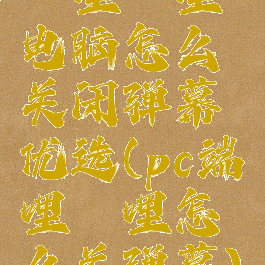 哩 哩
电脑怎么
关闭弹幕
优选(pc端
哩 哩怎
么关弹幕)